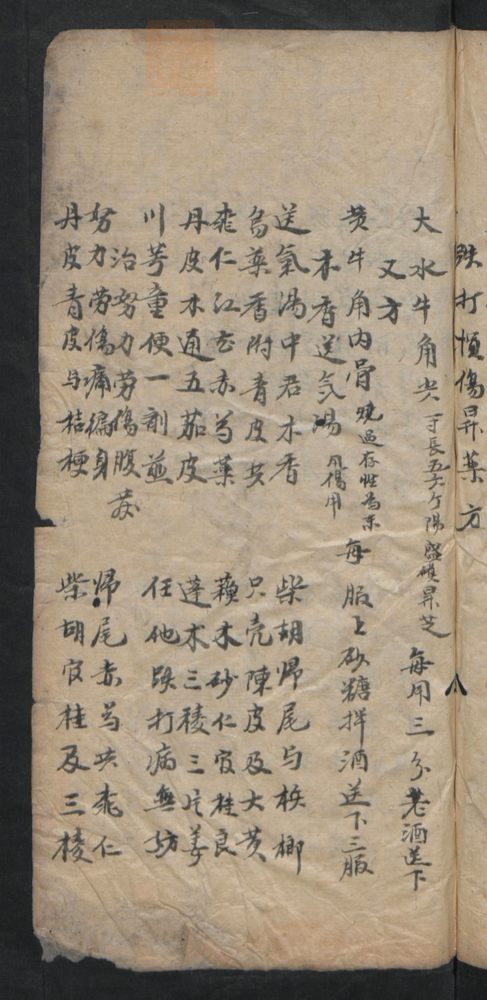 跌打損傷昇薬方
大水牛角尖 一寸長五六个陽盤煅昇芝 每用三分老酒送下
又方
黄牛角内骨 燒過存性為末 每服上砂糖拌酒送下三服
木香送气湯 凡傷用
送氣湯中君木香 柴胡歸尾与梹榔
烏藥香附青皮共 只壳陳皮及大黄
桃仁江芯赤芍藥 蘓木砂仁官桂良
丹皮木通五茄皮 蓬木三稜三片姜
川芎童便一剤並 任他跌打病無妨
治努力劳傷腹
努力劳傷痛徧身 歸尾赤芍共桃仁
丹皮青皮与桔梗 柴胡官桂及三稜